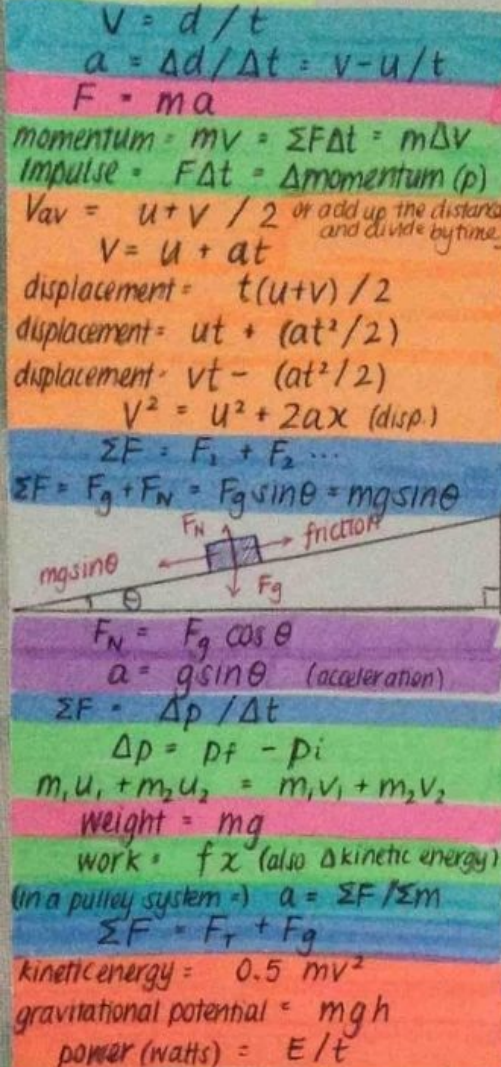 V = d/t
a = Δd/Δt = v-u/t
F = ma
momentum = mv = ΣFΔt = mΔv
Impulse = FΔt = Δmomentum (p)
Vav = u+v / 2 or add up the distance
and divide by time
V = u + at
displacement = t(u+v) / 2
displacement = ut + (at²/2)
displacement = vt - (at²/2)
V² = u² + 2ax (disp.)
ΣF = F₁ + F₂ ...
ΣF = Fg + FN = Fg sinθ = mg sinθ
FN
friction
mgsinθ
Fg
θ
FN = Fg cos θ
a = gsinθ (acceleration)
ΣF = Δp / Δt
Δp = pf - pi
m₁u₁ + m₂u₂ = m₁v₁ + m₂v₂
weight = mg
work = fx (also Δkinetic energy)
(in a pulley system =) a = ΣF/Σm
ΣF = FT + Fg
kinetic energy = 0.5 mv²
gravitational potential = mgh
power (watts) = E/t